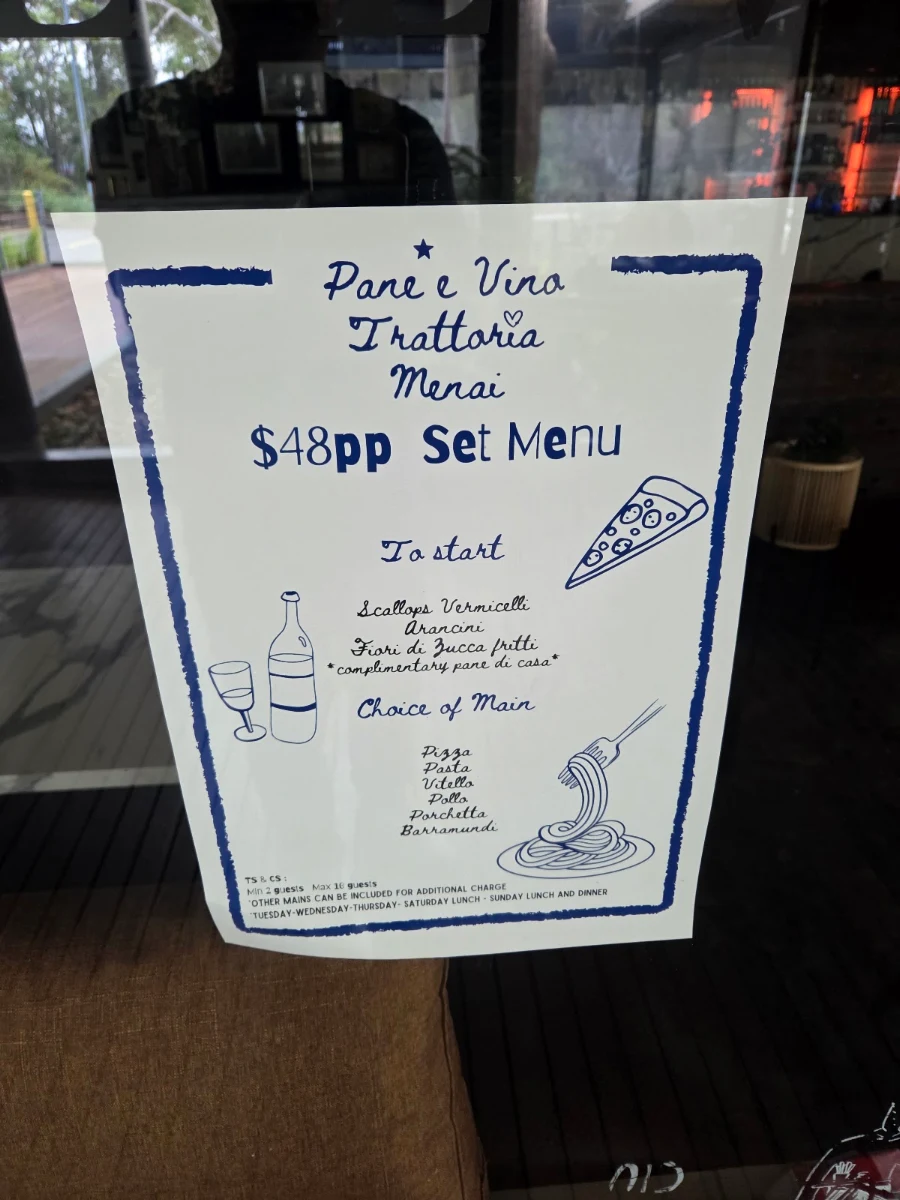 Pane e Vino
Trattoria
Menai
$48pp Set Menu
To start
Scallops Vermicelli
Arancini
Fiori di Zucca fritti
*complimentary pane di casa*
Choice of Main
Pizza
Pasta
Vitello
Pollo
Porchetta
Barramundi
TS & CS :
Min 2 guests Max 10 guests
*OTHER MAINS CAN BE INCLUDED FOR ADDITIONAL CHARGE
*TUESDAY-WEDNESDAY-THURSDAY- SATURDAY LUNCH - SUNDAY LUNCH AND DINNER